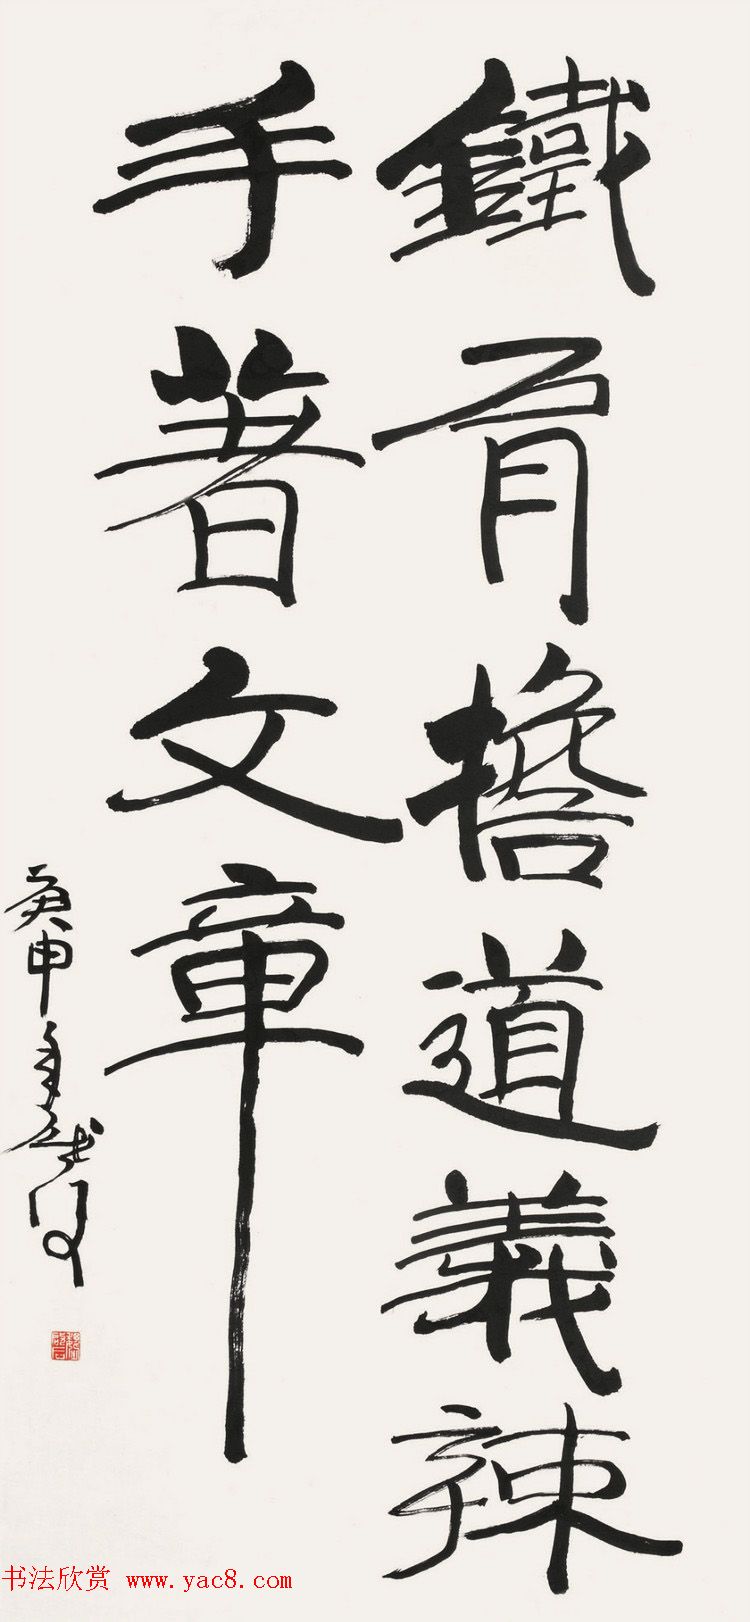 鐵肩擔道義辣
手著文章
庚申年
书法欣赏 www.yac8.com